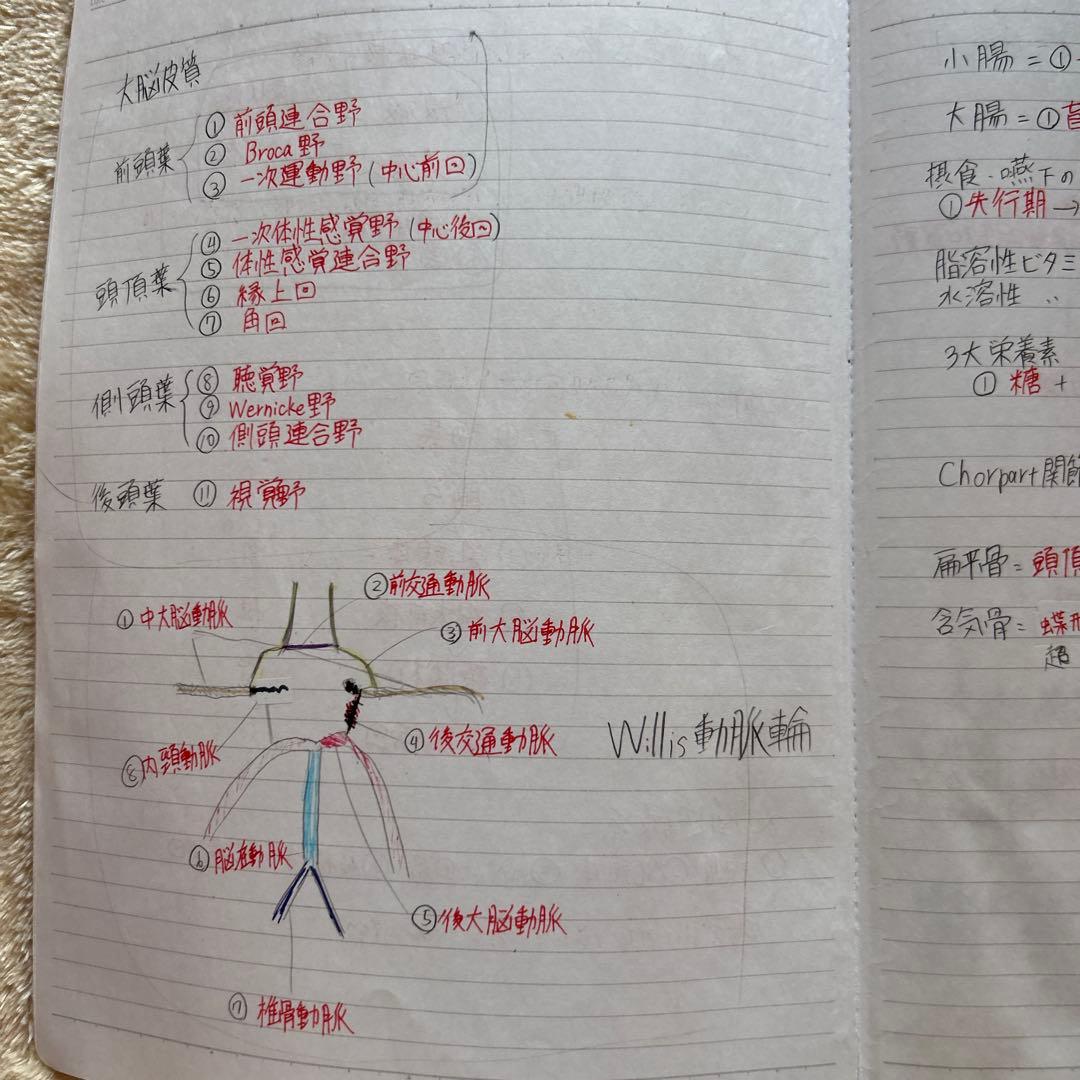 大脳皮質
前頭葉
① 前頭連合野
② Broca野
③ 一次運動野(中心前回)
頭頂葉
④ 一次体性感覚野(中心後回)
⑤ 体性感覚連合野
⑥ 縁上回
⑦ 角回
側頭葉
⑧ 聴覚野
⑨ Wernicke野
⑩ 側頭連合野
後頭葉 ⑪ 視覚野
① 中大脳動脈
② 前交通動脈
③ 前大脳動脈
④ 後交通動脈
Willis動脈輪
⑧ 内頸動脈
⑥ 脳底動脈
⑤ 後大脳動脈
⑦ 椎骨動脈
小腸 = ①
大腸 = ① 盲
摂食・嚥下の
① 失行期 →
脂溶性ビタミ
水溶性 〃
3大栄養素
① 糖 +
Chorpart関節
扁平骨 = 頭頂
含気骨 = 蝶形
超